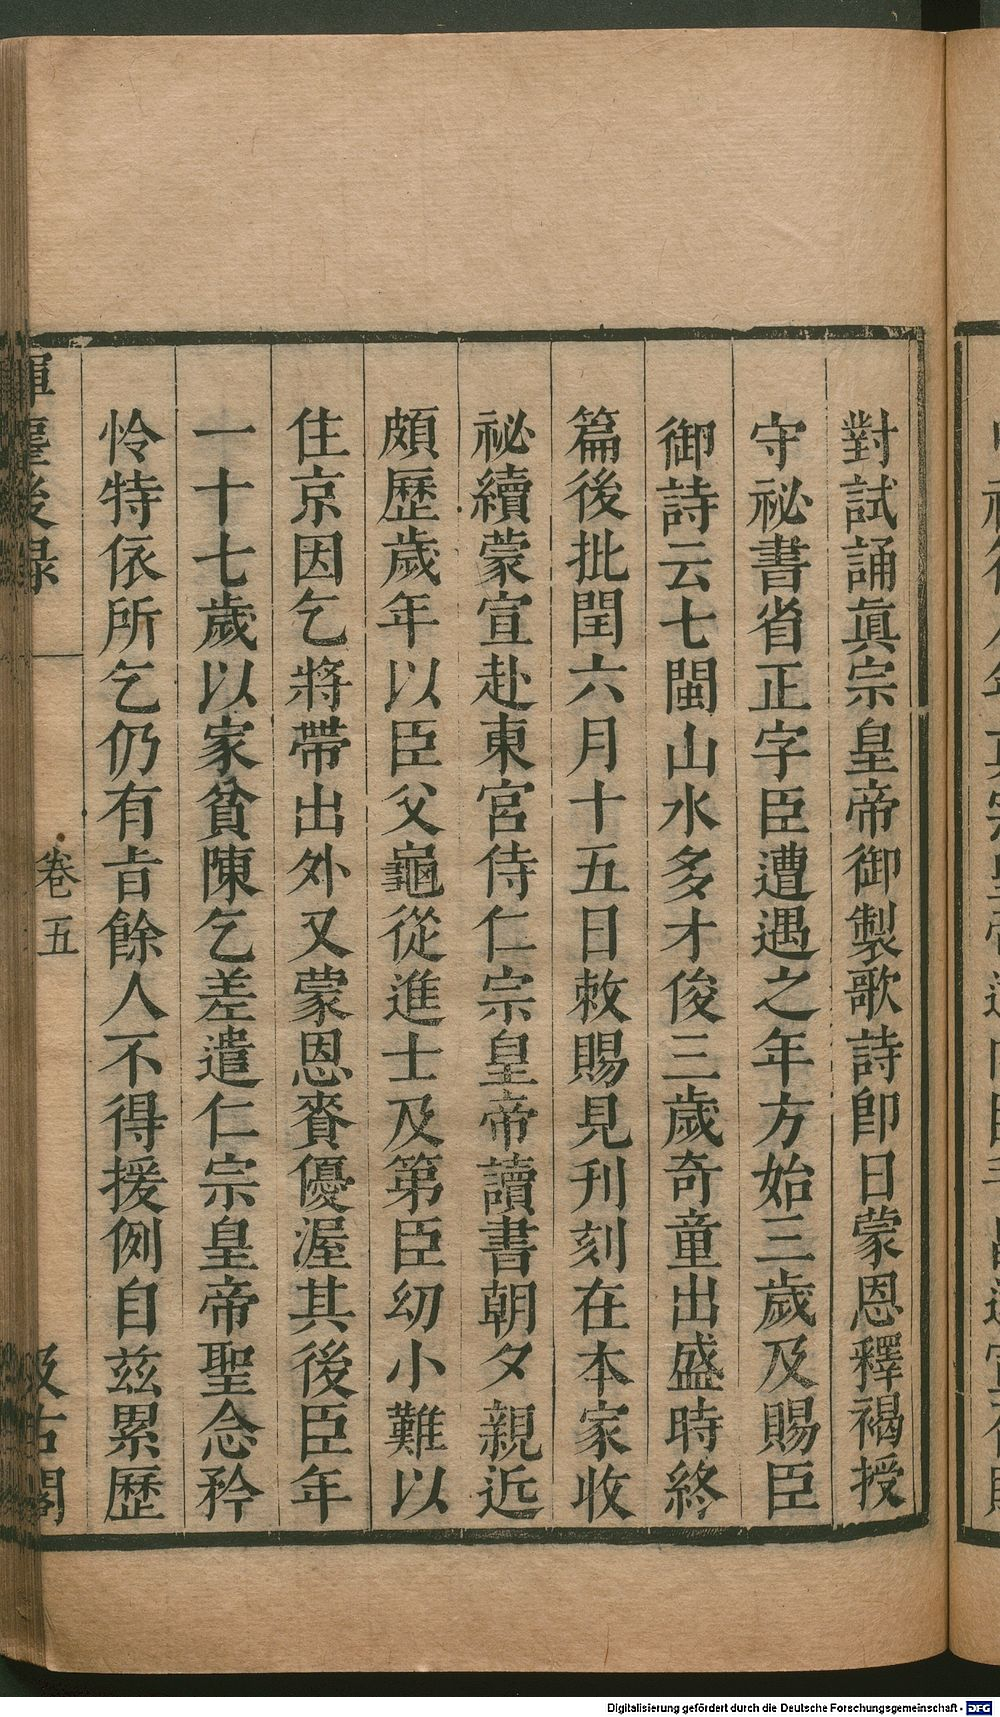 對試誦眞宗皇帝御製歌詩卽日蒙恩釋褐授
守祕書省正字臣遭遇之年方始三歲及賜臣
御詩云七閩山水多才俊三歲奇童出盛時終
篇後批閏六月十五日敕賜見刊刻在本家收
祕續蒙宣赴東宮侍仁宗皇帝讀書朝夕親近
頗歷歲年以臣父龜從進士及第臣幼小難以
住京因乞將帶出外又蒙恩賚優渥其後臣年
一十七歲以家貧陳乞差遣仁宗皇帝聖念矜
怜特依所乞仍有旨餘人不得援例自茲累歷
揮麈後録
卷五
汲古閣
Digitalisierung gefördert durch die Deutsche Forschungsgemeinschaft - DFG